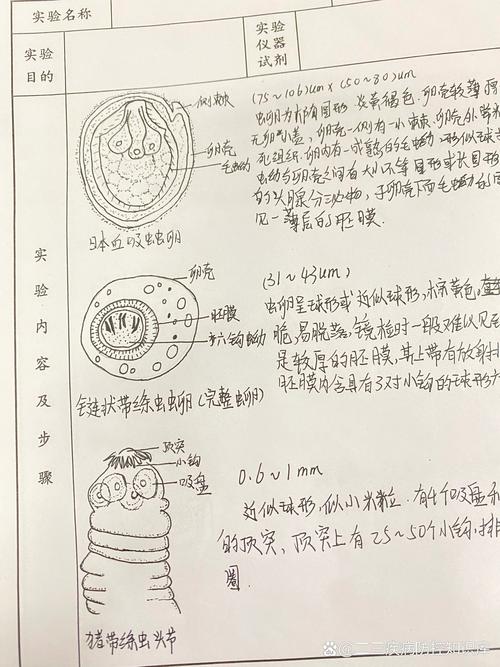 实验名称
实验目的
实验仪器试剂
实验内容及步骤
侧棘
卵壳
毛蚴
日本血吸虫虫卵
(75~106)um×(50~80)um
虫卵为椭圆形,淡黄褐色,卵壳较薄
无卵盖,卵壳一侧有一小棘,卵壳外常
死组织,卵内有一成熟的毛蚴
虫蚴与卵壳之间有大小不等圆形或长圆形
腺分泌物,于卵壳下面毛蚴的
见一薄层的胚膜.
卵壳
胚膜
六钩蚴
链状带绦虫虫卵(完整虫卵)
(31~43um)
虫卵呈球形或近似球形,棕黄色,
脆,易脱落,镜检时一般难以见
是较厚的胚膜,其上带有放射
胚膜内含具有3对小钩的球形六
顶突
小钩
吸盘
猪带绦虫头节
0.6~1mm
近似球形,似小米粒.有4个吸盘和
的顶突、顶突上有25~50个小钩,排
圈.
二二疾病防控知识库